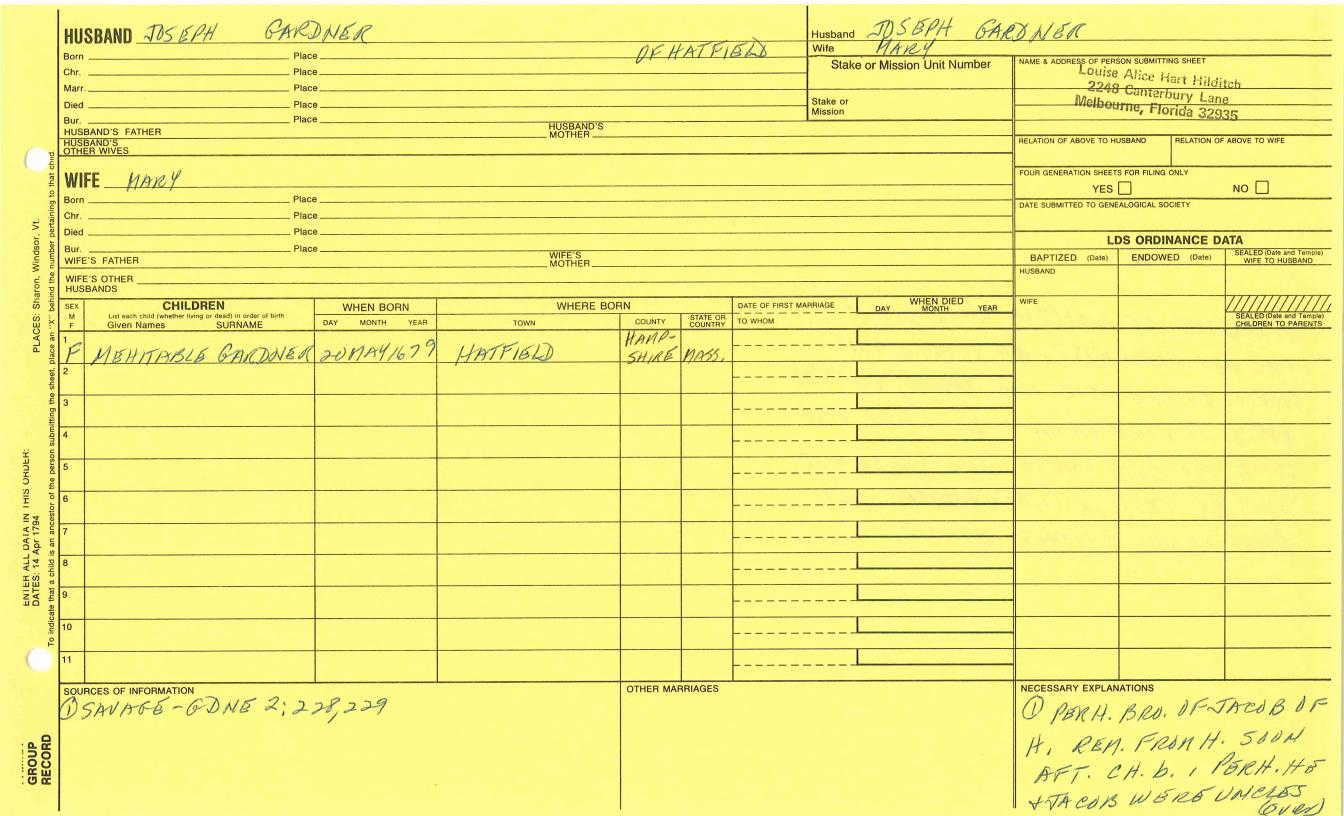 HUSBAND JOSEPH GARDNER
Born Place OF HATFIELD
Chr. Place
Marr. Place
Died Place
Bur. Place
HUSBAND'S FATHER HUSBAND'S MOTHER
HUSBAND'S OTHER WIVES
Husband JOSEPH GARDNER
Wife MARY
Stake or Mission Unit Number
Stake or Mission
NAME & ADDRESS OF PERSON SUBMITTING SHEET
Louise Alice Hart Hilditch
2248 Canterbury Lane
Melbourne, Florida 32935
RELATION OF ABOVE TO HUSBAND RELATION OF ABOVE TO WIFE
FOUR GENERATION SHEETS FOR FILING ONLY
YES NO
DATE SUBMITTED TO GENEALOGICAL SOCIETY
WIFE MARY
Born Place
Chr. Place
Died Place
Bur. Place
WIFE'S FATHER WIFE'S MOTHER
WIFE'S OTHER HUSBANDS
LDS ORDINANCE DATA
BAPTIZED (Date) ENDOWED (Date) SEALED (Date and Temple) WIFE TO HUSBAND
HUSBAND
WIFE
SEALED (Date and Temple) CHILDREN TO PARENTS
SEX M F
CHILDREN
List each child (whether living or dead) in order of birth
Given Names SURNAME
WHEN BORN
DAY MONTH YEAR
WHERE BORN
TOWN COUNTY STATE OR COUNTRY
DATE OF FIRST MARRIAGE
TO WHOM
WHEN DIED
DAY MONTH YEAR
1 F MEHITABLE GARDNER 20 MAY 1679 HATFIELD HAMP-SHIRE MASS.
2
3
4
5
6
7
8
9
10
11
SOURCES OF INFORMATION
① SAVAGE - GDNE 2; 228, 229
OTHER MARRIAGES
NECESSARY EXPLANATIONS
① PERH. BRO. OF JACOB OF
H, REM. FROM H. SOON
AFT. CH. b. , PERH. HE
+ JACOB WERE UNCLES
(over)
ENTER ALL DATA IN THIS ORDER:
DATES: 14 Apr 1794
PLACES: Sharon, Windsor, Vt.
To indicate that a child is an ancestor of the person submitting the sheet, place an "X" behind the number pertaining to that child.
GROUP
RECORD